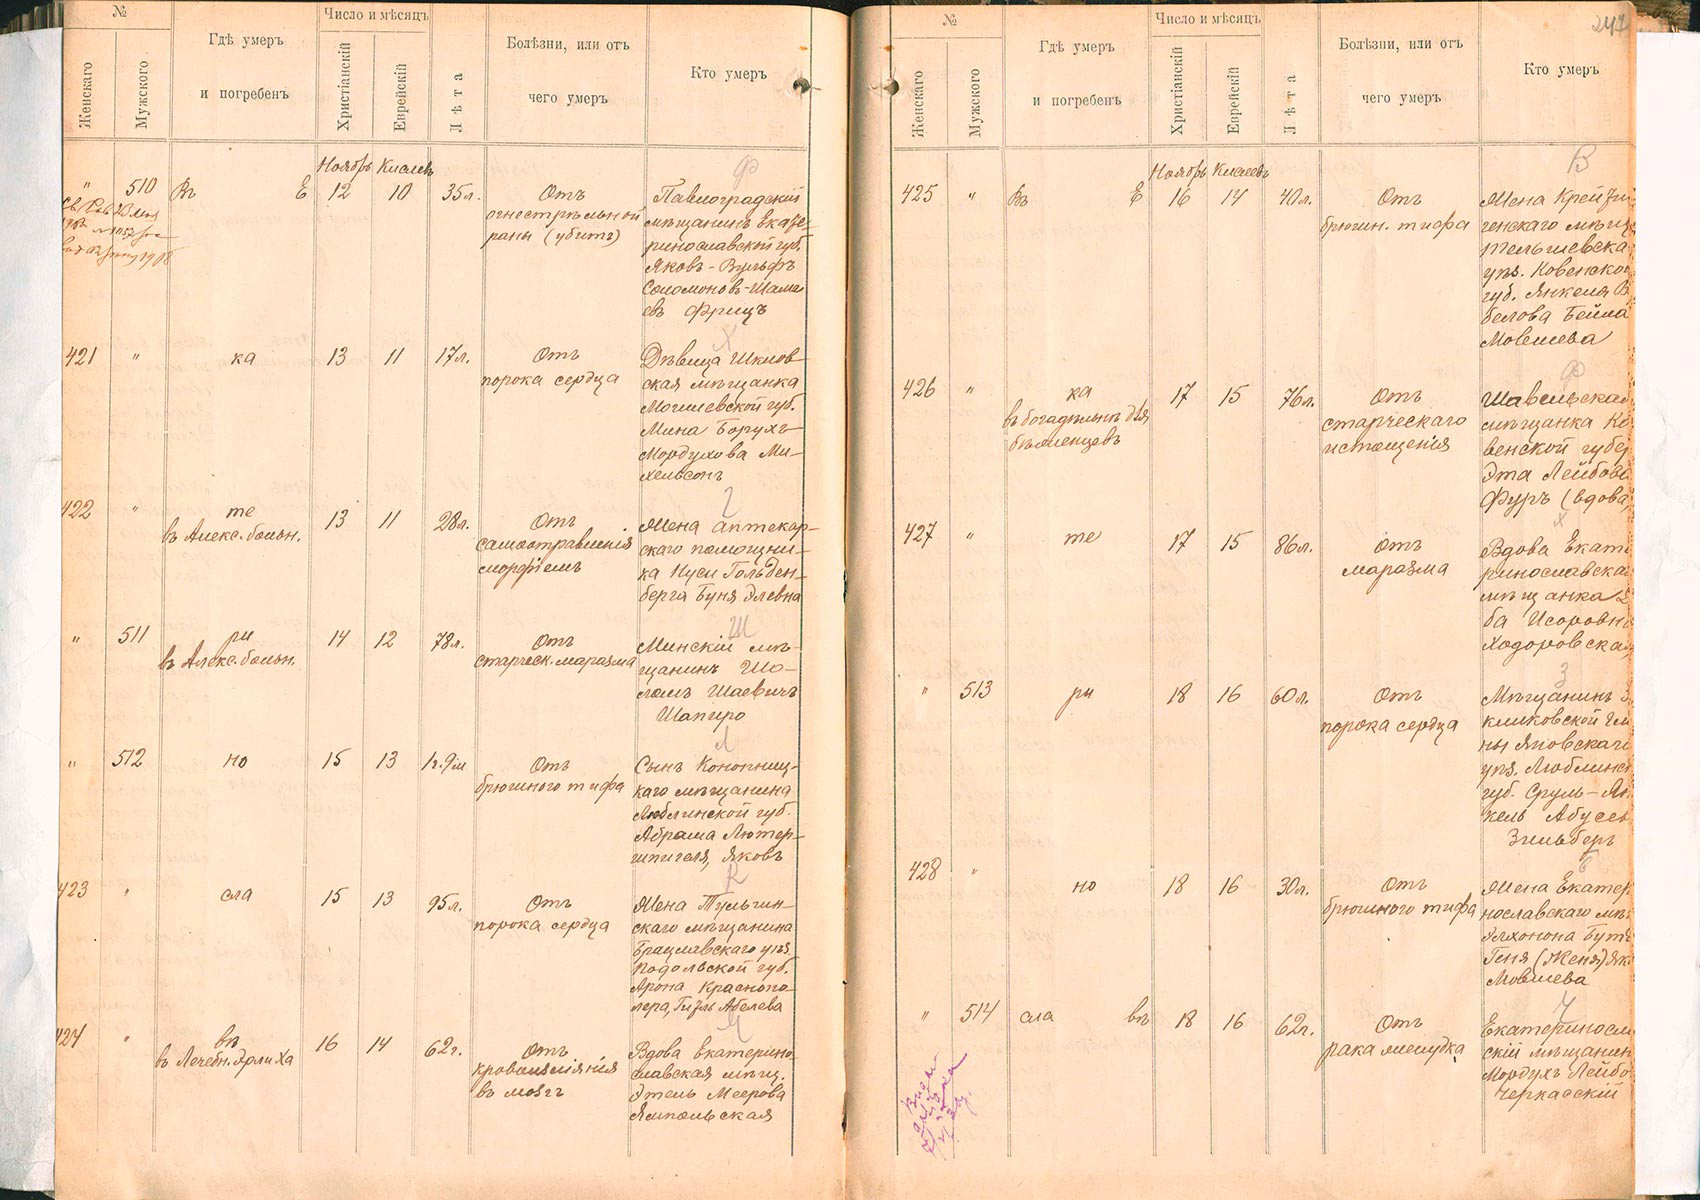 №
Женскаго
Мужского
Гдѣ умеръ
и погребенъ
Число и мѣсяцъ
Христіанскій
Еврейскій
Лѣта
Болѣзни, или отъ
чего умеръ
Кто умеръ
Ноябрь Кислевъ
" 510 Въ Е 12 10 35л.
Отъ
огнестрѣльной
раны (убитъ)
Павлоградскій
мѣщанинъ Екате-
ринославской губ.
Яковъ-Вульфъ
Соломоновъ-Шама
евъ Фрицъ
Ф
421 " ка 13 11 17л.
Отъ
порока сердца
Дѣвица Шклов-
ская мѣщанка
Могилевской губ.
Мина Борухъ-
Мордухова Ми-
хельсонъ
422 " те
въ Алекс. больн.
13 11 28л.
Отъ
самоотравленія
морфіемъ
Жена аптекар-
скаго помощни-
ка Нусн Гольден-
берга Буня Элевна
" 511 ри
въ Алекс. больн.
14 12 78л.
Отъ
старческ. маразма
Ш
Минскій мѣ-
щанинъ Шо-
ломъ Шаевичъ
Шапиро
" 512 но 15 13 1г. 9м
Отъ
брюшного тифа
Л
Сынъ Конопниц-
каго мѣщанина
Люблинской губ.
Абрама Лютер-
шпигеля, Яковъ
423 " сла 15 13 95л.
Отъ
порока сердца
К
Жена Тульчин-
скаго мѣщанина
Брацлавскаго уѣз.
Подольской губ.
Арона Краснопо-
лера, Гизль Абелева
424 " въ
въ Лечебн. Эрлиха
16 14 62г.
Отъ
кровоизліянія
въ мозгъ
Вдова Екатерино-
славская мѣщ.
Этель Меерова
Ямпольская
247
№
Женскаго
Мужского
Гдѣ умеръ
и погребенъ
Число и мѣсяцъ
Христіанскій
Еврейскій
Лѣта
Болѣзни, или отъ
чего умеръ
Кто умеръ
Ноябрь Кислевъ
425 " Въ Е 16 14 40л.
Отъ
брюшн. тифа
В
Жена Крейзин
генскаго мѣщ
Тельшевска
уѣз. Ковенской
губ. Янкеля В
белова Бейла
Мовшева
426 " ка
въ богадѣльнѣ для
бѣженцевъ
17 15 76л.
Отъ
старческаго
истощенія
Ф
Шавельская
мѣщанка Ко
венской губер
Эта Лейбова
Фуръ (вдова)
427 " те 17 15 86л.
отъ
маразма
Х
Вдова Екате
ринославская
мѣщанка
ба Исоровна
Ходоровская
" 513 ри 18 16 60л.
Отъ
порока сердца
З
Мѣщанинъ З
кликовской гм
ны Яновскаго
уѣз. Люблинс
губ. Сруль-Ян
кель Абусев
Зильберъ
428 " но 18 16 30л.
Отъ
брюшного тифа
Б
Жена Екатер
нославскаго мѣ
Элхонона Бут
Геня (Женя) Як
Мовшева
" 514 сла въ 18 16 62г.
Отъ
рака желудка
Ч
Екатеринослав
скій мѣщанин
Мордухъ Лейбо
Черкасскій